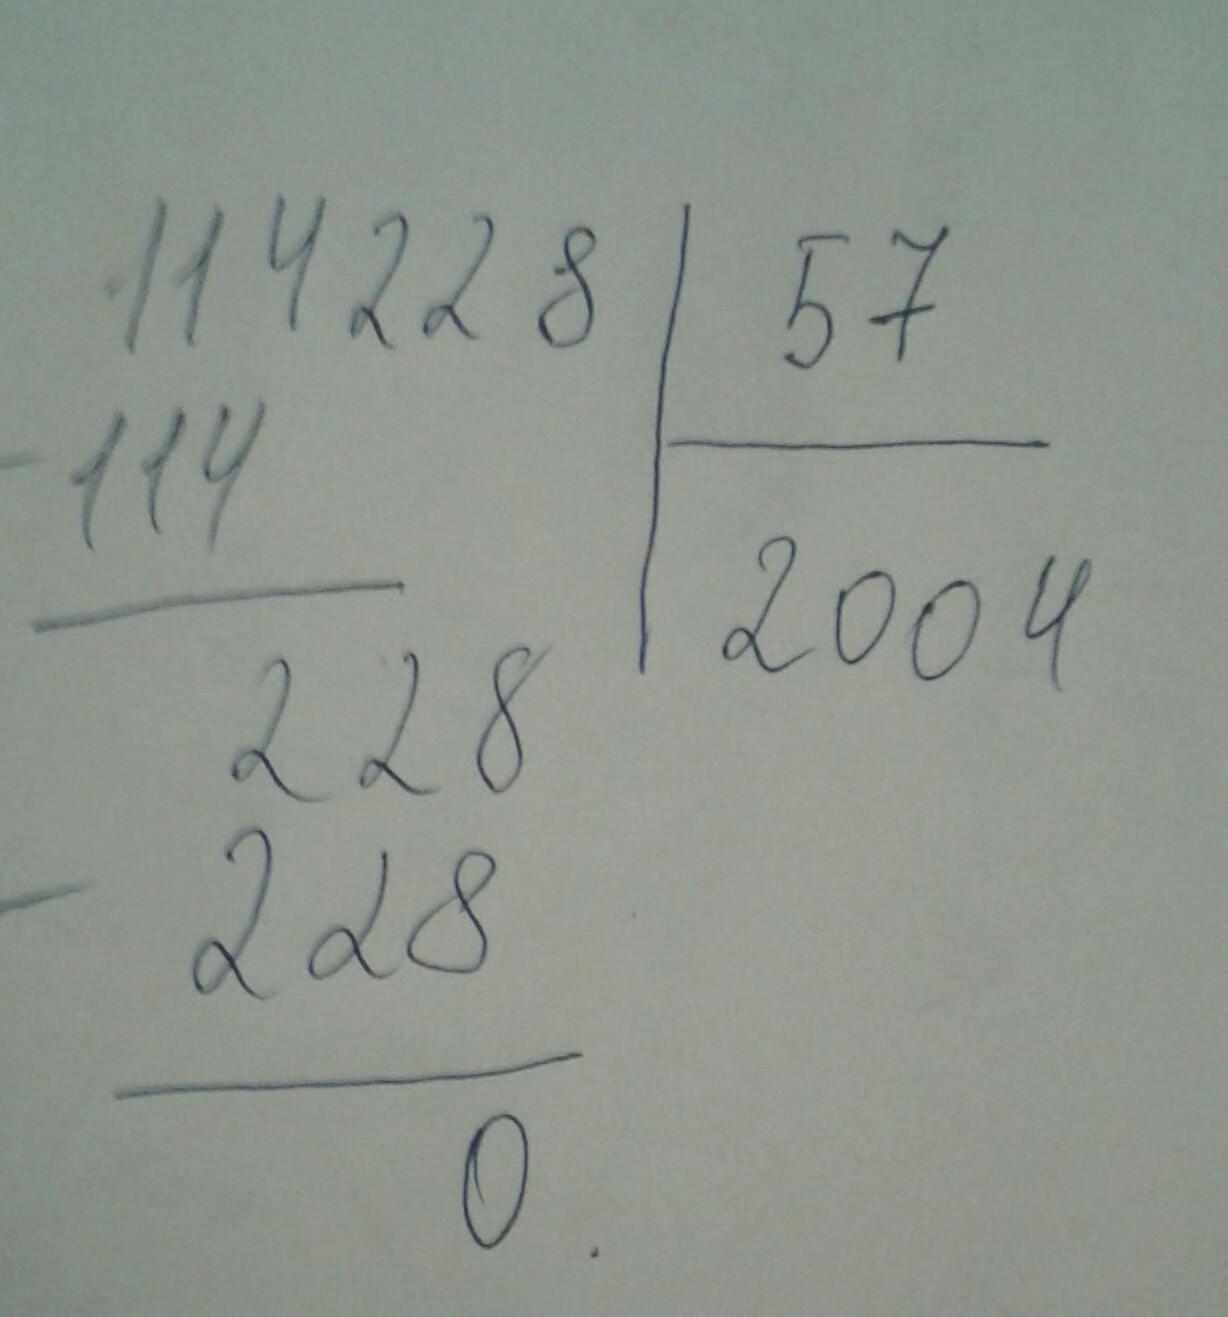 114228 57
- 114
2004
228
- 228
0.